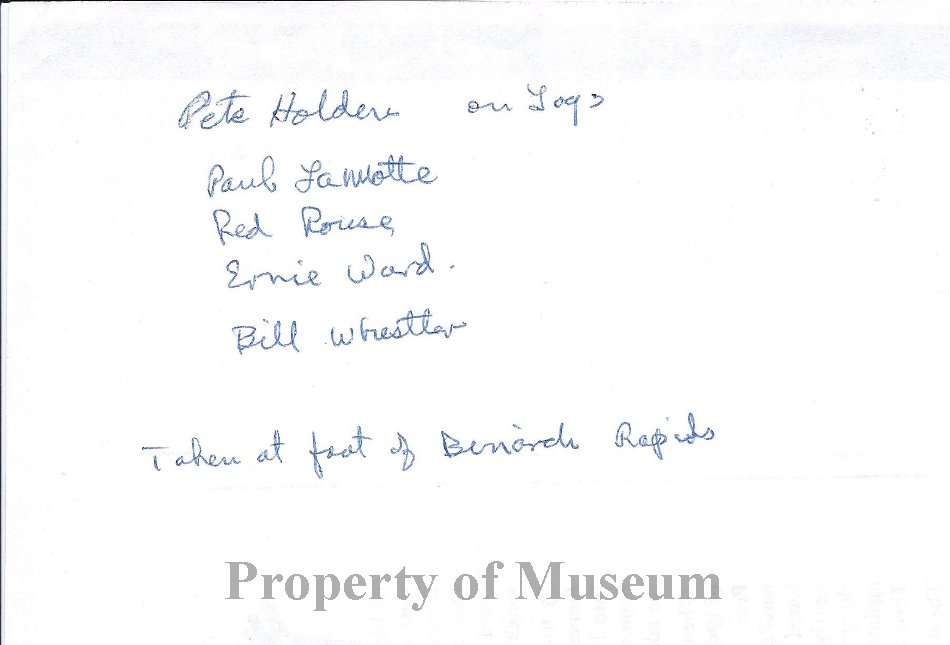 Pete Holden on Logs
Paul Lamotte
Red Rouse
Ernie Ward.
Bill
Taken at foot of Rapids
Property of Museum